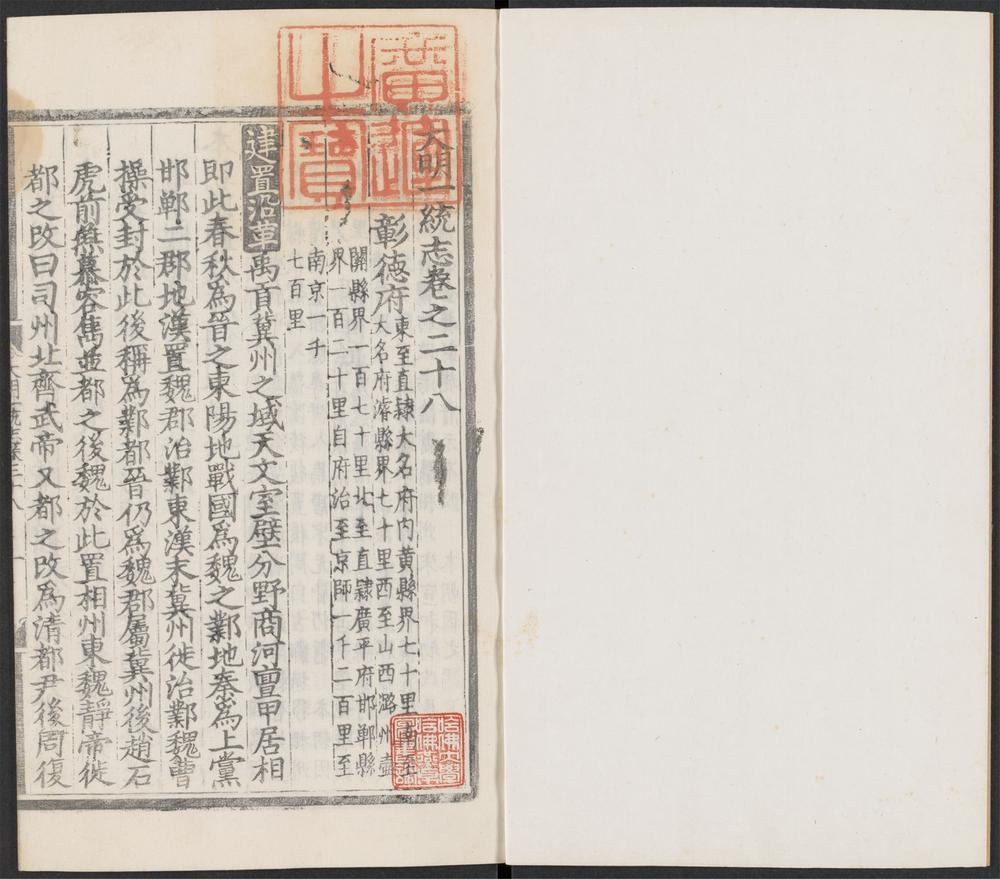 大明一統志卷之二十八
彰德府
東至直隸大名府内黄縣界七十里南至
大名府濬縣界七十里西至山西潞州壺
關縣界一百七十里北至直隸廣平府邯鄲縣
界一百二十里自府治至京師一千二百里至
南京一千
七百里
建置沿革禹貢冀州之域天文室壁分野商河亶甲居相
即此春秋為晉之東陽地戰國為魏之鄴地秦為上黨
邯鄲二郡地漢置魏郡治鄴東漢末冀州徙治鄴魏曹
操受封於此後稱為鄴都晉仍為魏郡屬冀州後趙石
虎前燕慕容雋並都之後魏於此置相州東魏靜帝徙
都之改曰司州北齊武帝又都之改為清都尹後周復
廣運之寶
哈佛大學